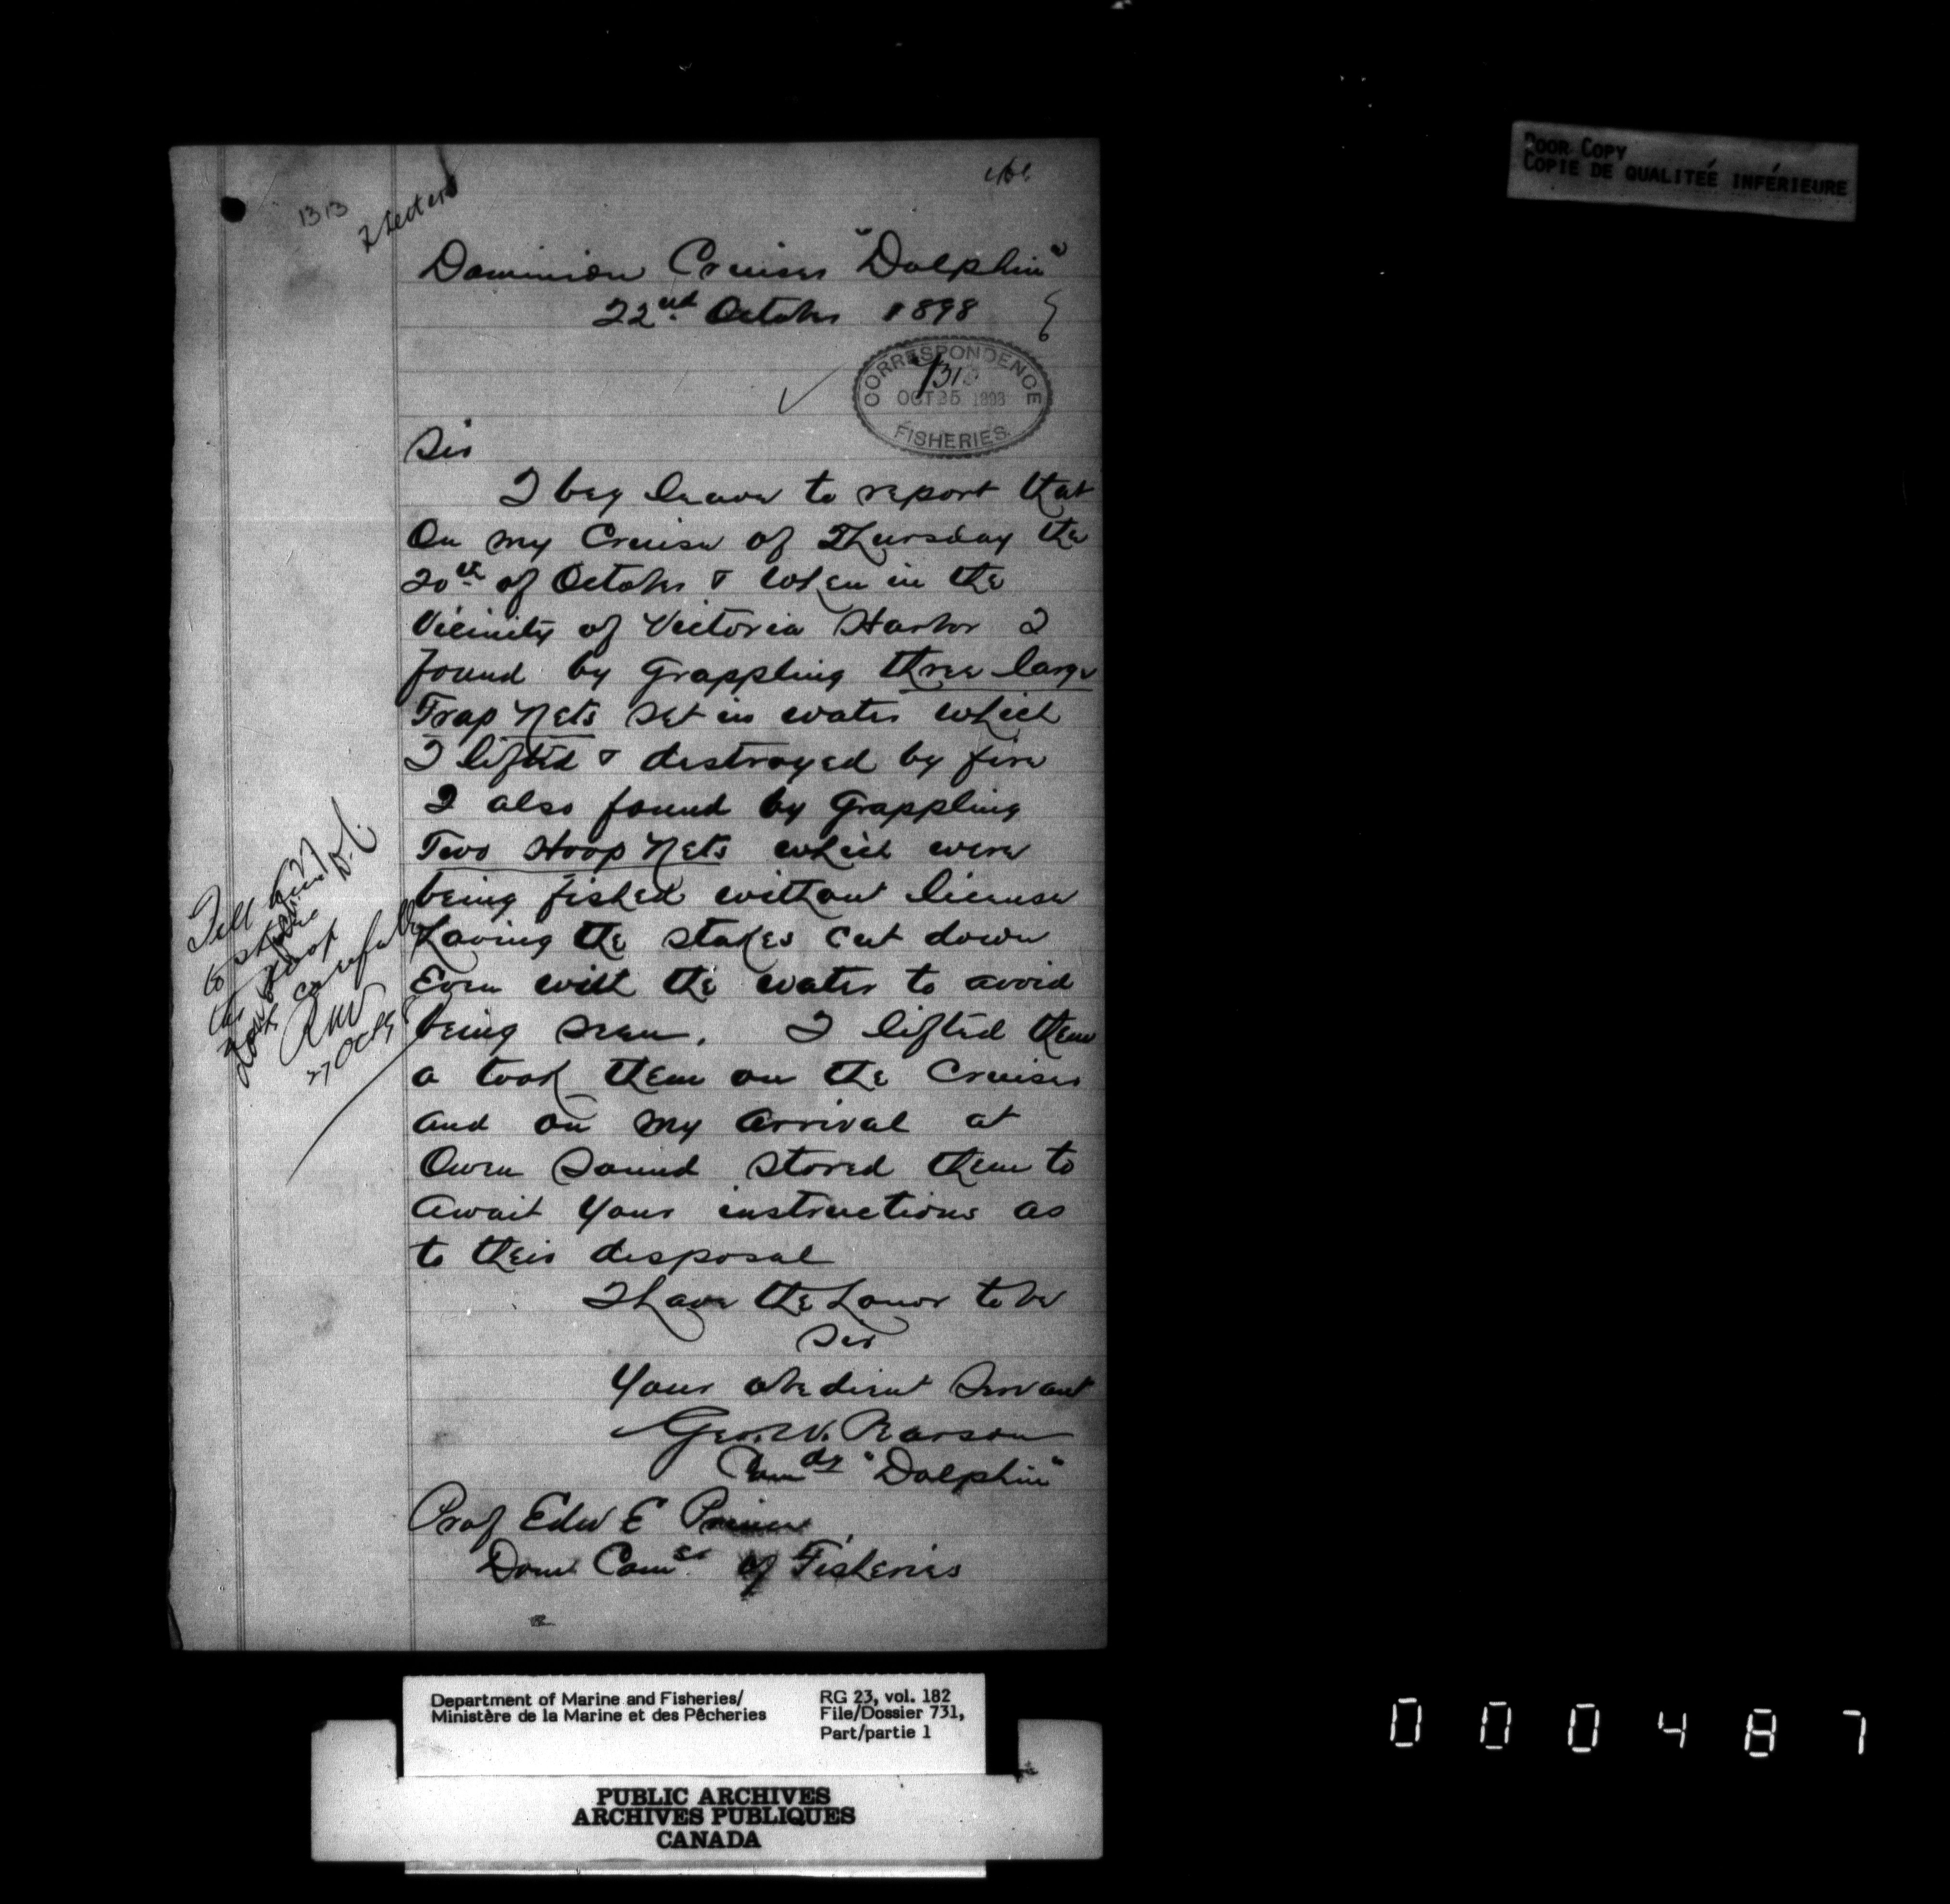 1313
2 Letters
Dominion Cruiser "Dolphin"
22nd October 1898
CORRESPONDENCE
1313
OCT 25 1898
FISHERIES
Sir
I beg leave to report that
On my Cruise of Thursday the
20th of October & when in the
Vicinity of Victoria Harbor I
found by Grappling three large
Trap Nets set in water which
I lifted & destroyed by fire
I also found by Grappling
Two Hoop Nets which were
being fished without license
having the stakes cut down
Even with the water to avoid
being seen. I lifted them
& took them on the Cruiser
and on my arrival at
Owen Sound stored them to
Await your instructions as
to their disposal
I have the honor to be
Sir
Your obedient Servant
Geo. W. Pearson
Comdg "Dolphin"
Prof Edw E Prince
Dom Comer of Fisheries
Tell him
to store
the hoop
nets carefully
27 Oct
POOR COPY
COPIE DE QUALITEÉ INFÉRIEURE
Department of Marine and Fisheries/
Ministère de la Marine et des Pêcheries
RG 23, vol. 182
File/Dossier 731,
Part/partie 1
PUBLIC ARCHIVES
ARCHIVES PUBLIQUES
CANADA
000487